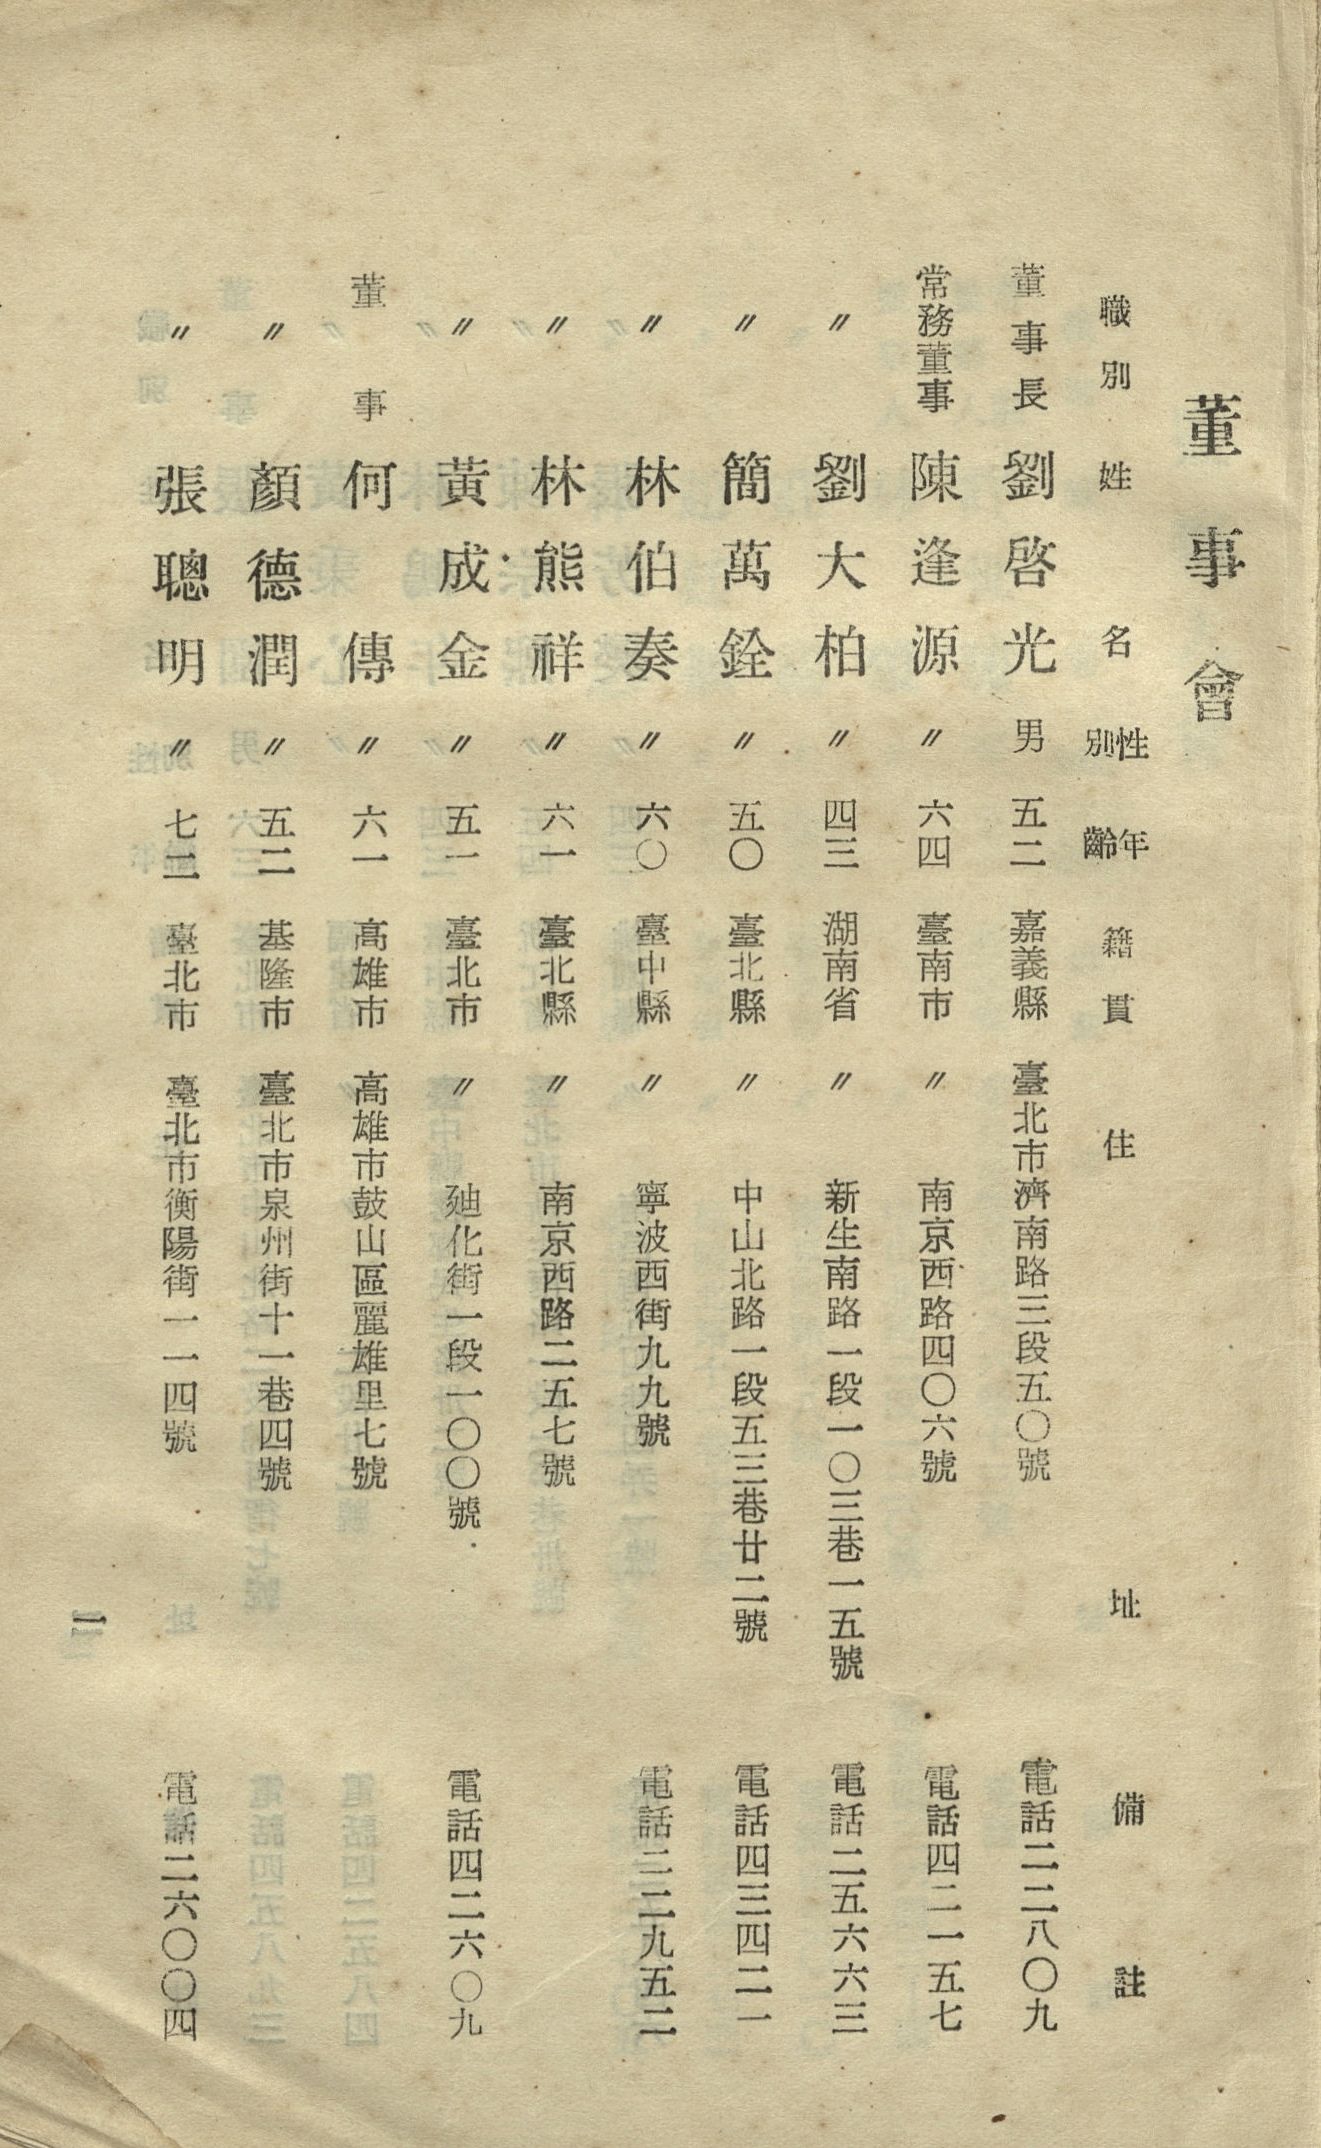 董事會
職別 姓名 性別 年齡 籍貫 住址 備註
董事長 劉啓光 男 五二 嘉義縣 臺北市濟南路三段五〇號 電話二二八〇九
常務董事 陳逢源 〃 六四 臺南市 〃 南京西路四〇六號 電話四二一五七
〃 劉大柏 〃 四三 湖南省 〃 新生南路一段一〇三巷一五號 電話二五六六三
〃 簡萬銓 〃 五〇 臺北縣 〃 中山北路一段五三巷廿二號 電話四三四二一
〃 林伯奏 〃 六〇 臺中縣 〃 寧波西街九九號 電話二二九五二
〃 林熊祥 〃 六一 臺北縣 〃 南京西路二五七號
〃 黃成金 〃 五一 臺北市 〃 廸化街一段一〇〇號 電話四二六〇九
董事 何傳 〃 六一 高雄市 高雄市鼓山區麗雄里七號
〃 顏德潤 〃 五二 基隆市 臺北市泉州街十一巷四號
〃 張聰明 〃 七二 臺北市 臺北市衡陽街一一四號 電話二六〇〇四
一